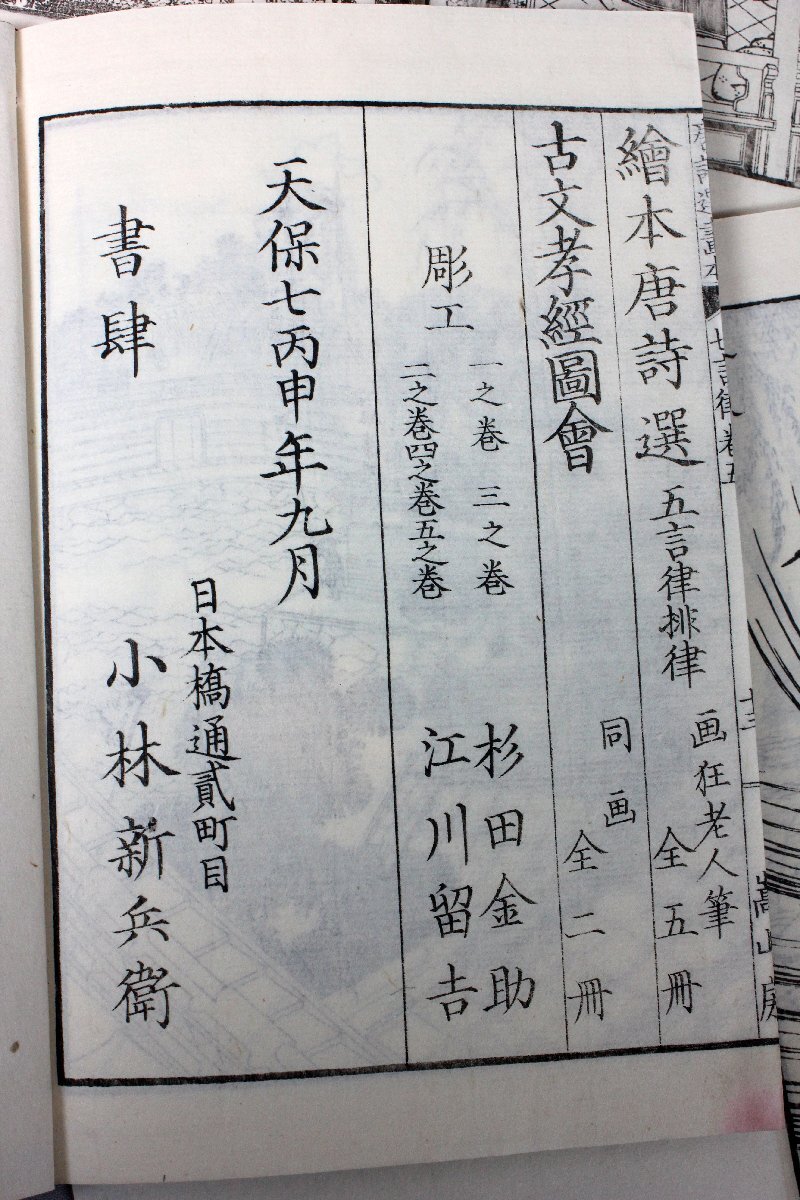 唐詩選畫本
七言律卷五
十三
嵩山房
繪本唐詩選 五言律排律 画狂老人筆 全五冊
古文孝經圖會 同画 全二冊
彫工
一之巻 三之巻 杉田金助
二之巻四之巻五之巻 江川留吉
天保七丙申年九月
日本橋通貳町目
書肆 小林新兵衛